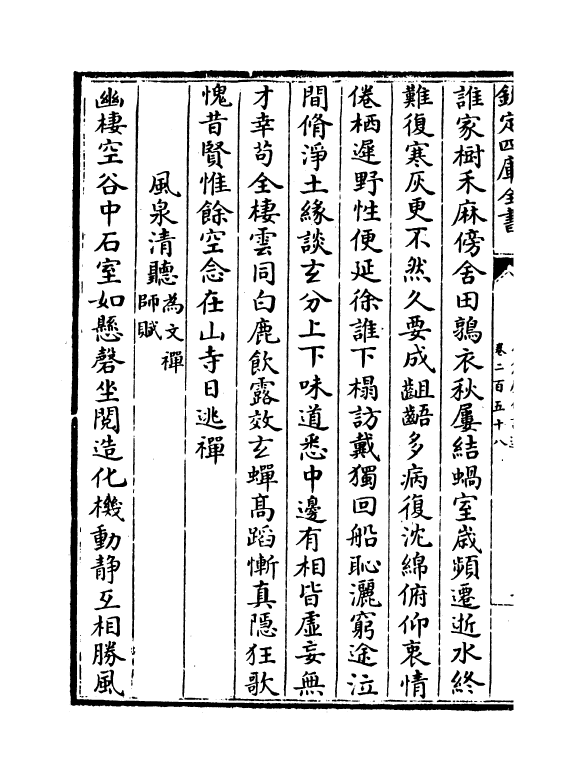 欽定四庫全書
卷二百五十八
誰家樹禾麻傍舍田鶉衣秋屢結蝸室歲頻遷逝水終
難復寒灰更不然久要成齟齬多病復沈綿俯仰衷情
倦栖遲野性便延徐誰下榻訪戴獨回船恥灑窮途泣
間脩淨土緣談玄分上下味道悉中邊有相皆虛妄無
才幸苟全棲雲同白鹿飲露效玄蟬高蹈慚真隱狂歌
愧昔賢惟餘空念在山寺日逃禪
風泉清聽為文禪師賦
幽棲空谷中石室如懸磬坐閱造化機動靜互相勝風